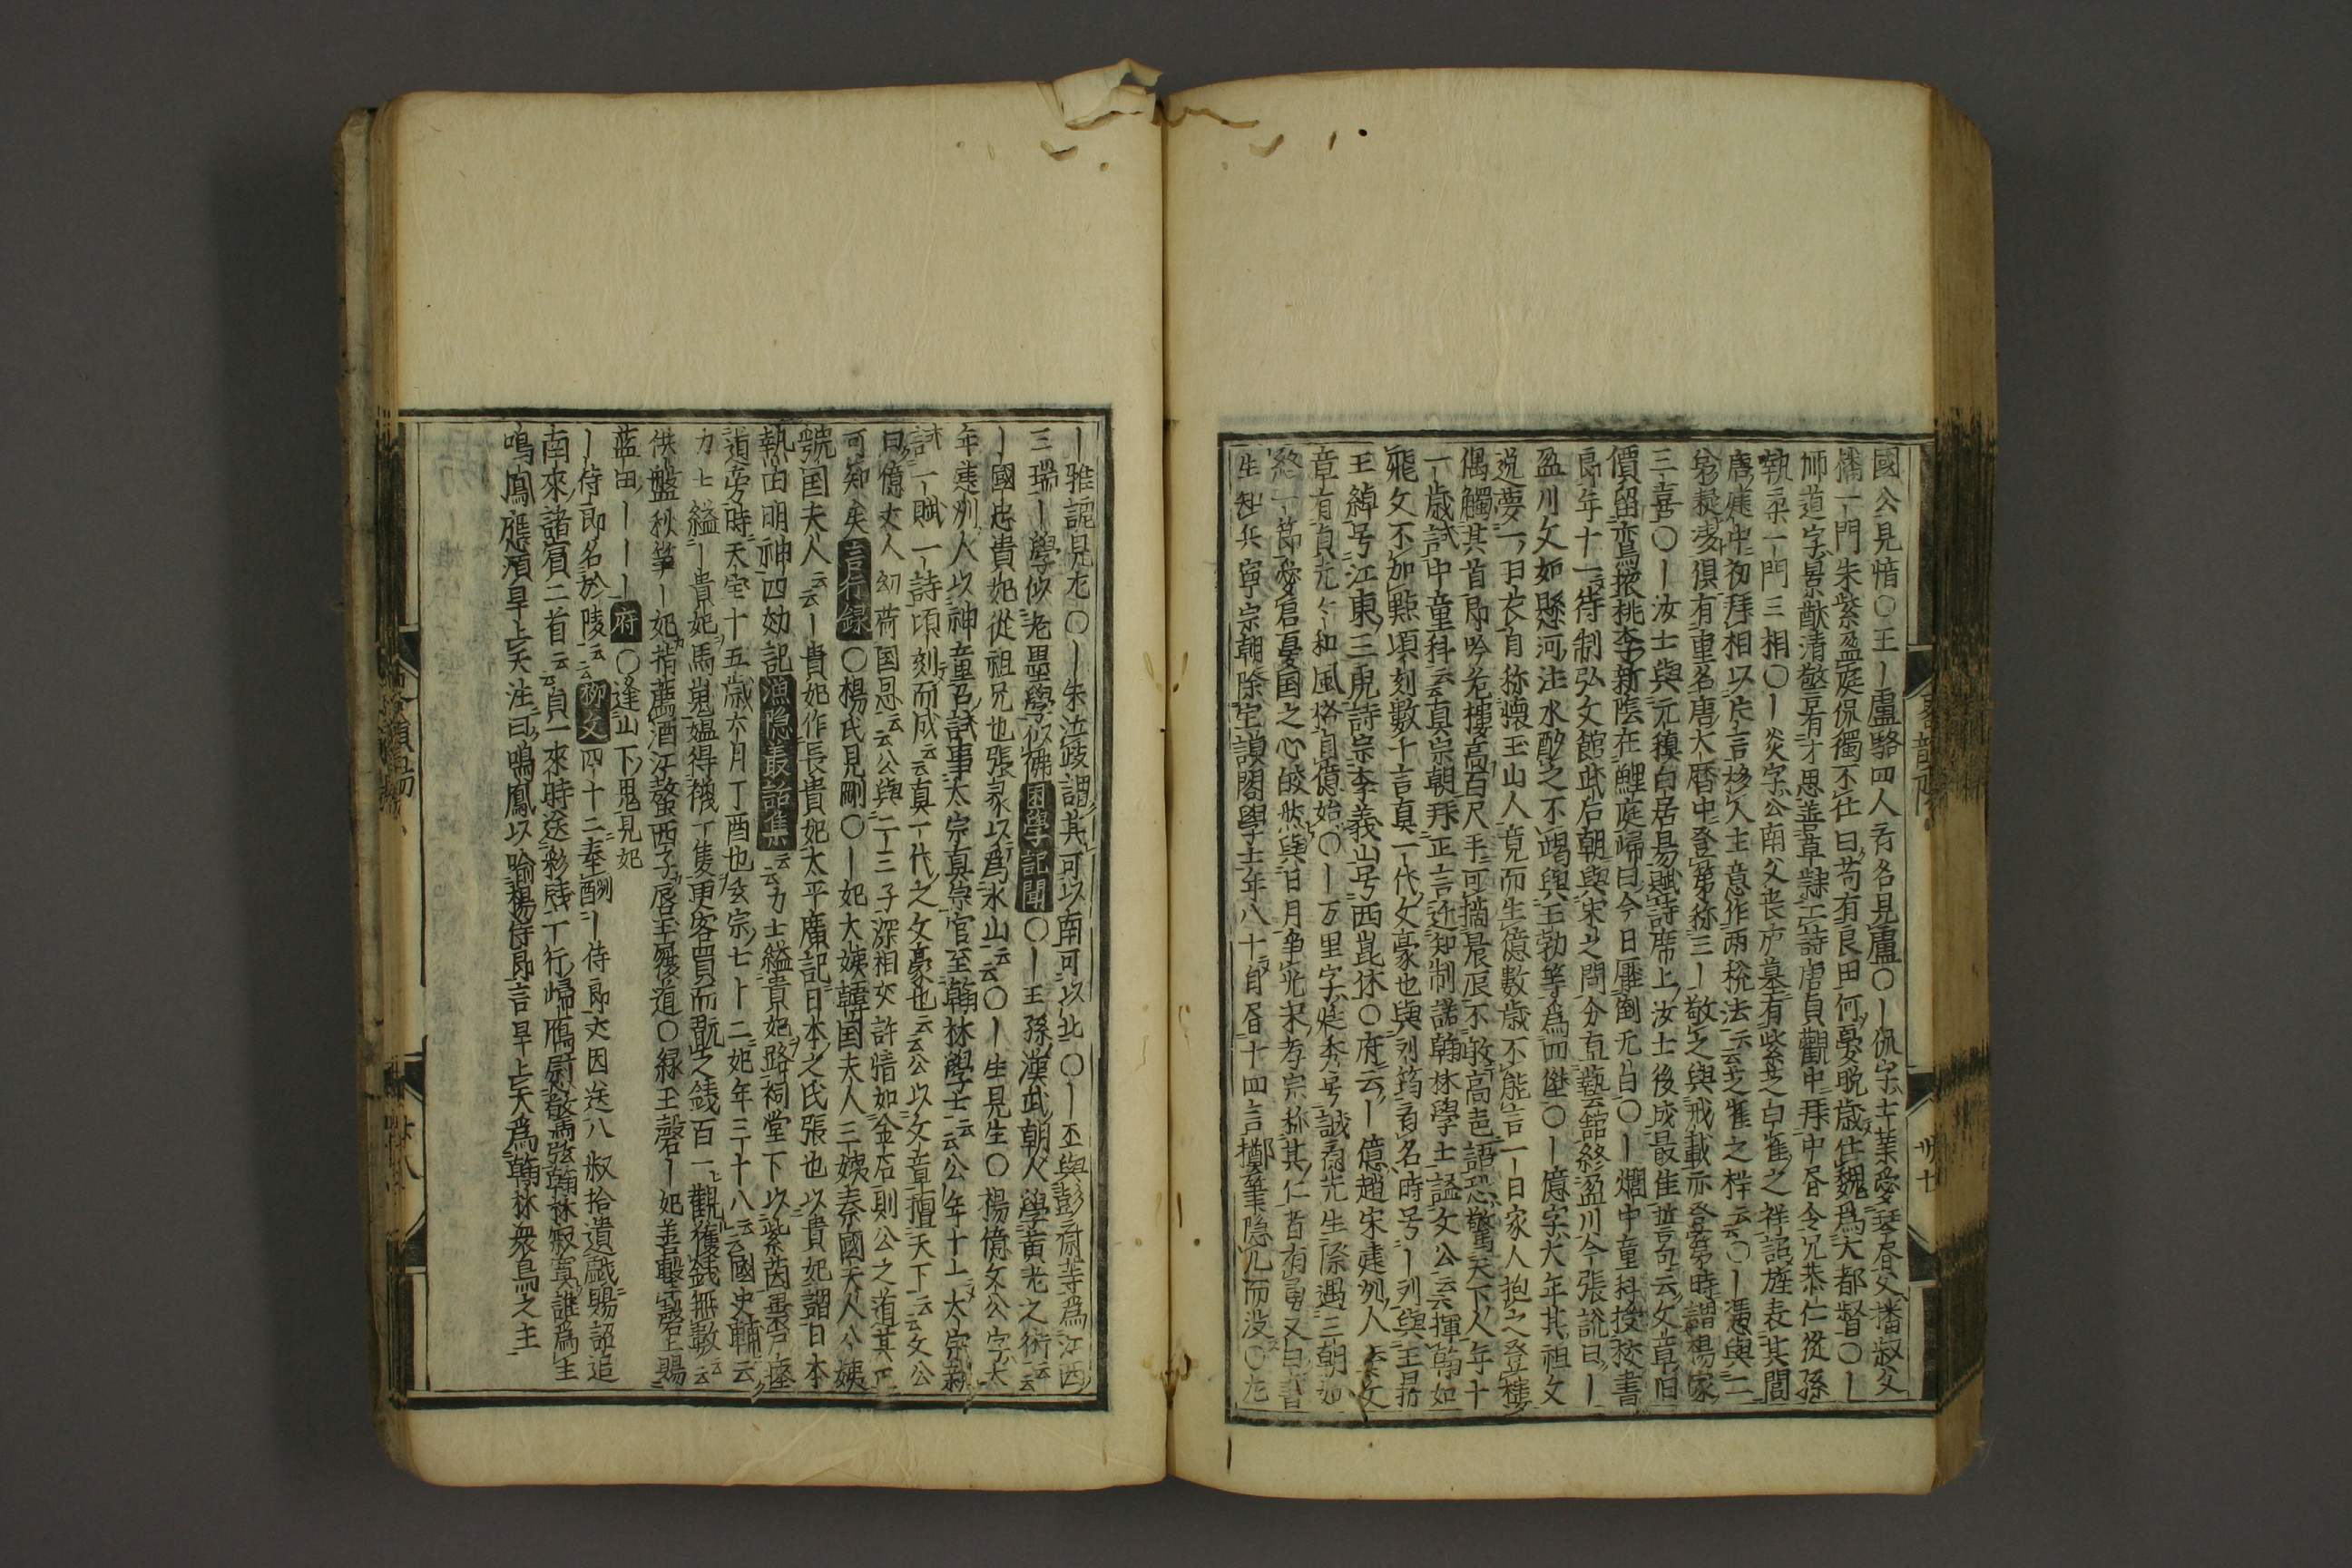 國公見愔〇王ー盧駱四人有名見盧〇ー侃字士業愛琴昏父播叔父
播一門朱紫盈庭侃獨不仕曰苟有良田何憂晚歳仕魏為大都督〇ー
師道字景猷清警有才思善草隷工詩唐貞觀中拜中昏令兄恭仁從孫
執柔一門三相〇ー炎字公南父喪庐墓有紫芝白雀之祥詔旌表其閭
唐建中初拜相以片言移人主意作兩稅法云云芝雀之祥云云〇ー憑與二
弟凝凌俱有重名唐大曆中登第称三ー敬之與戎載亦登第時謂楊家
三喜〇ー汝士與元稹白居易賦詩席上汝士後成最佳哲句云文章旧
價留鸞掖桃李新陰在鯉庭歸曰今日壓倒元白〇ー烱中童科授校書
郎年十一待制弘文館武后朝與宋之問分直藝舘終盈川令張說曰ー
盈川文如懸河注水酌之不竭與王勃等為四傑〇ー億字大年其祖文
逸夢一日衣自称懐玉山人竟而生億數歳不能言一日家人抱之登樓
偶觸其首即吟危樓高百尺手可摘晨辰不敢高巨語恐驚天下人年十
一歳試中童科云云真宗朝拜正言近知制誥翰林學士諡文公云云揮翰如
飛文不加點頃刻數千言真一代文豪也與刘筠著名時号ー刘與王昻
王綽号江東三虎詩宗李義山号西崑体〇府云ー億趙宋建州人為文
章有貞元〻和風格自億始〇ー万里字廷秀号誠斎先生際遇三朝如
終一節愛君憂国之心皎然與日月争光宋孝宗称其仁者有勇又曰書
生知兵寧宗朝除宝謨閣學士年八十自昏十四言擲筆隐几而没〇尤
ー雅認見尤〇ー朱泣岐謂其可以南可以北〇ー丕與彭斎等為江西
三瑞ー學似老墨學似佛困學記聞〇ー王孫漢武朝人學黄老之術云云
ー國忠貴妃從祖兄也張彖以為氷山云云〇ー生見生〇楊億文公字大
年建州人以神童召試事太宗真宗官至翰林學士云云公年十一太宗親
試一賦一詩頃刻而成云云真一代之文豪也云云公以文章擅天下云云文公
曰億丈人幼荷国恩云云公與二三子深相交許諳如金石則公之道其正
可知矣言行録〇楊氏見剛〇ー妃大姨韓国夫人三姨秦國夫人八姨
虢国夫人云云ー貴妃作長貴妃太平廣記曰本之氏張也以貴妃謂曰本
執由明神四効記漁隐叢話集云云力士縊貴妃路祠堂下以紫茵裹尸瘞
道旁時天宝十五歳六月丁酉也玄宗七十二妃年三十八云云國史輔云
力士縊ー貴妃馬嵬媼得襪一隻更客買而翫之銭百一觀獲銭無數云云
供盤秋筝ー妃指薦酒汗蟄西子唇至殘道〇緑玉磬ー妃善擊磬上賜
藍田ーーー府〇逢山下鬼見妃
ー侍郎名於陵云云柳文四十二奉酬ー侍郎丈因送八叔拾遺戯賜詔追
南來諸賓二首云云貞一來時送彩牋一行歸雁慰驚弦翰林寂寞誰為主
鳴鳳應須早上天注曰鳴鳳以喻楊侍郎言早上天為翰林衆鳥之主